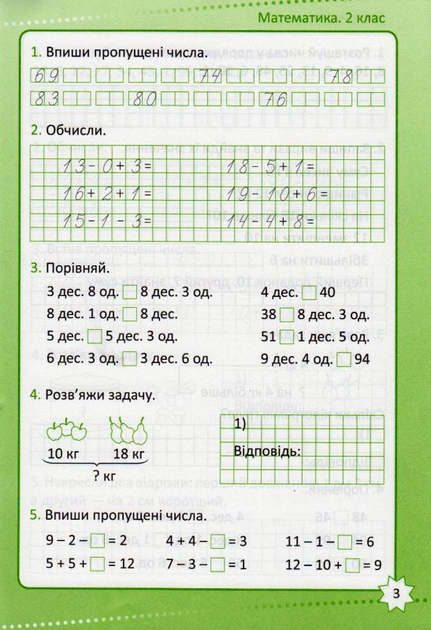 Математика. 2 клас
1. Впиши пропущені числа.
69 74 78
83 80 76
2. Обчисли.
13-0+3= 18-5+1=
16+2+1= 19-10+6=
15-1-3= 14-4+8=
3. Порівняй.
3 дес. 8 од. □ 8 дес. 3 од. 4 дес. □ 40
8 дес. 1 од. □ 8 дес. 38 □ 8 дес. 3 од.
5 дес. □ 5 дес. 3 од. 51 □ 1 дес. 5 од.
6 дес. 3 од. □ 3 дес. 6 од. 9 дес. 4 од. □ 94
4. Розв'яжи задачу.
1)
10 кг 18 кг Відповідь:
? кг
5. Впиши пропущені числа.
9 – 2 – □ = 2 4 + 4 – □ = 3 11 – 1 – □ = 6
5 + 5 + □ = 12 7 – 3 – □ = 1 12 – 10 + □ = 9
3